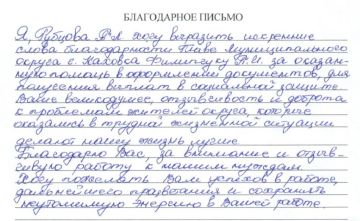 БЛАГОДАРНОЕ ПИСЬМО
Я, Рубцова Р.Я хочу выразить искренние
слова благодарности Главе Муниципального
округа г. Каховка Филипчуку П.И. за оказан-
ную помощь в оформлении документов, для
получения выплат в социальной защите
Ваше великодушее, отзывчивость и доброта
к проблемам жителей округа, которые
оказались в трудной жизненной ситуации
делают нашу жизнь лучше.
Благодарю Вас, за внимание и отзыв-
чивую работу к нашим нуждам.
Хочу пожелать Вам успехов в работе,
дальнейшего процветания и сохранять
неутомимую энергию в Вашей работе.